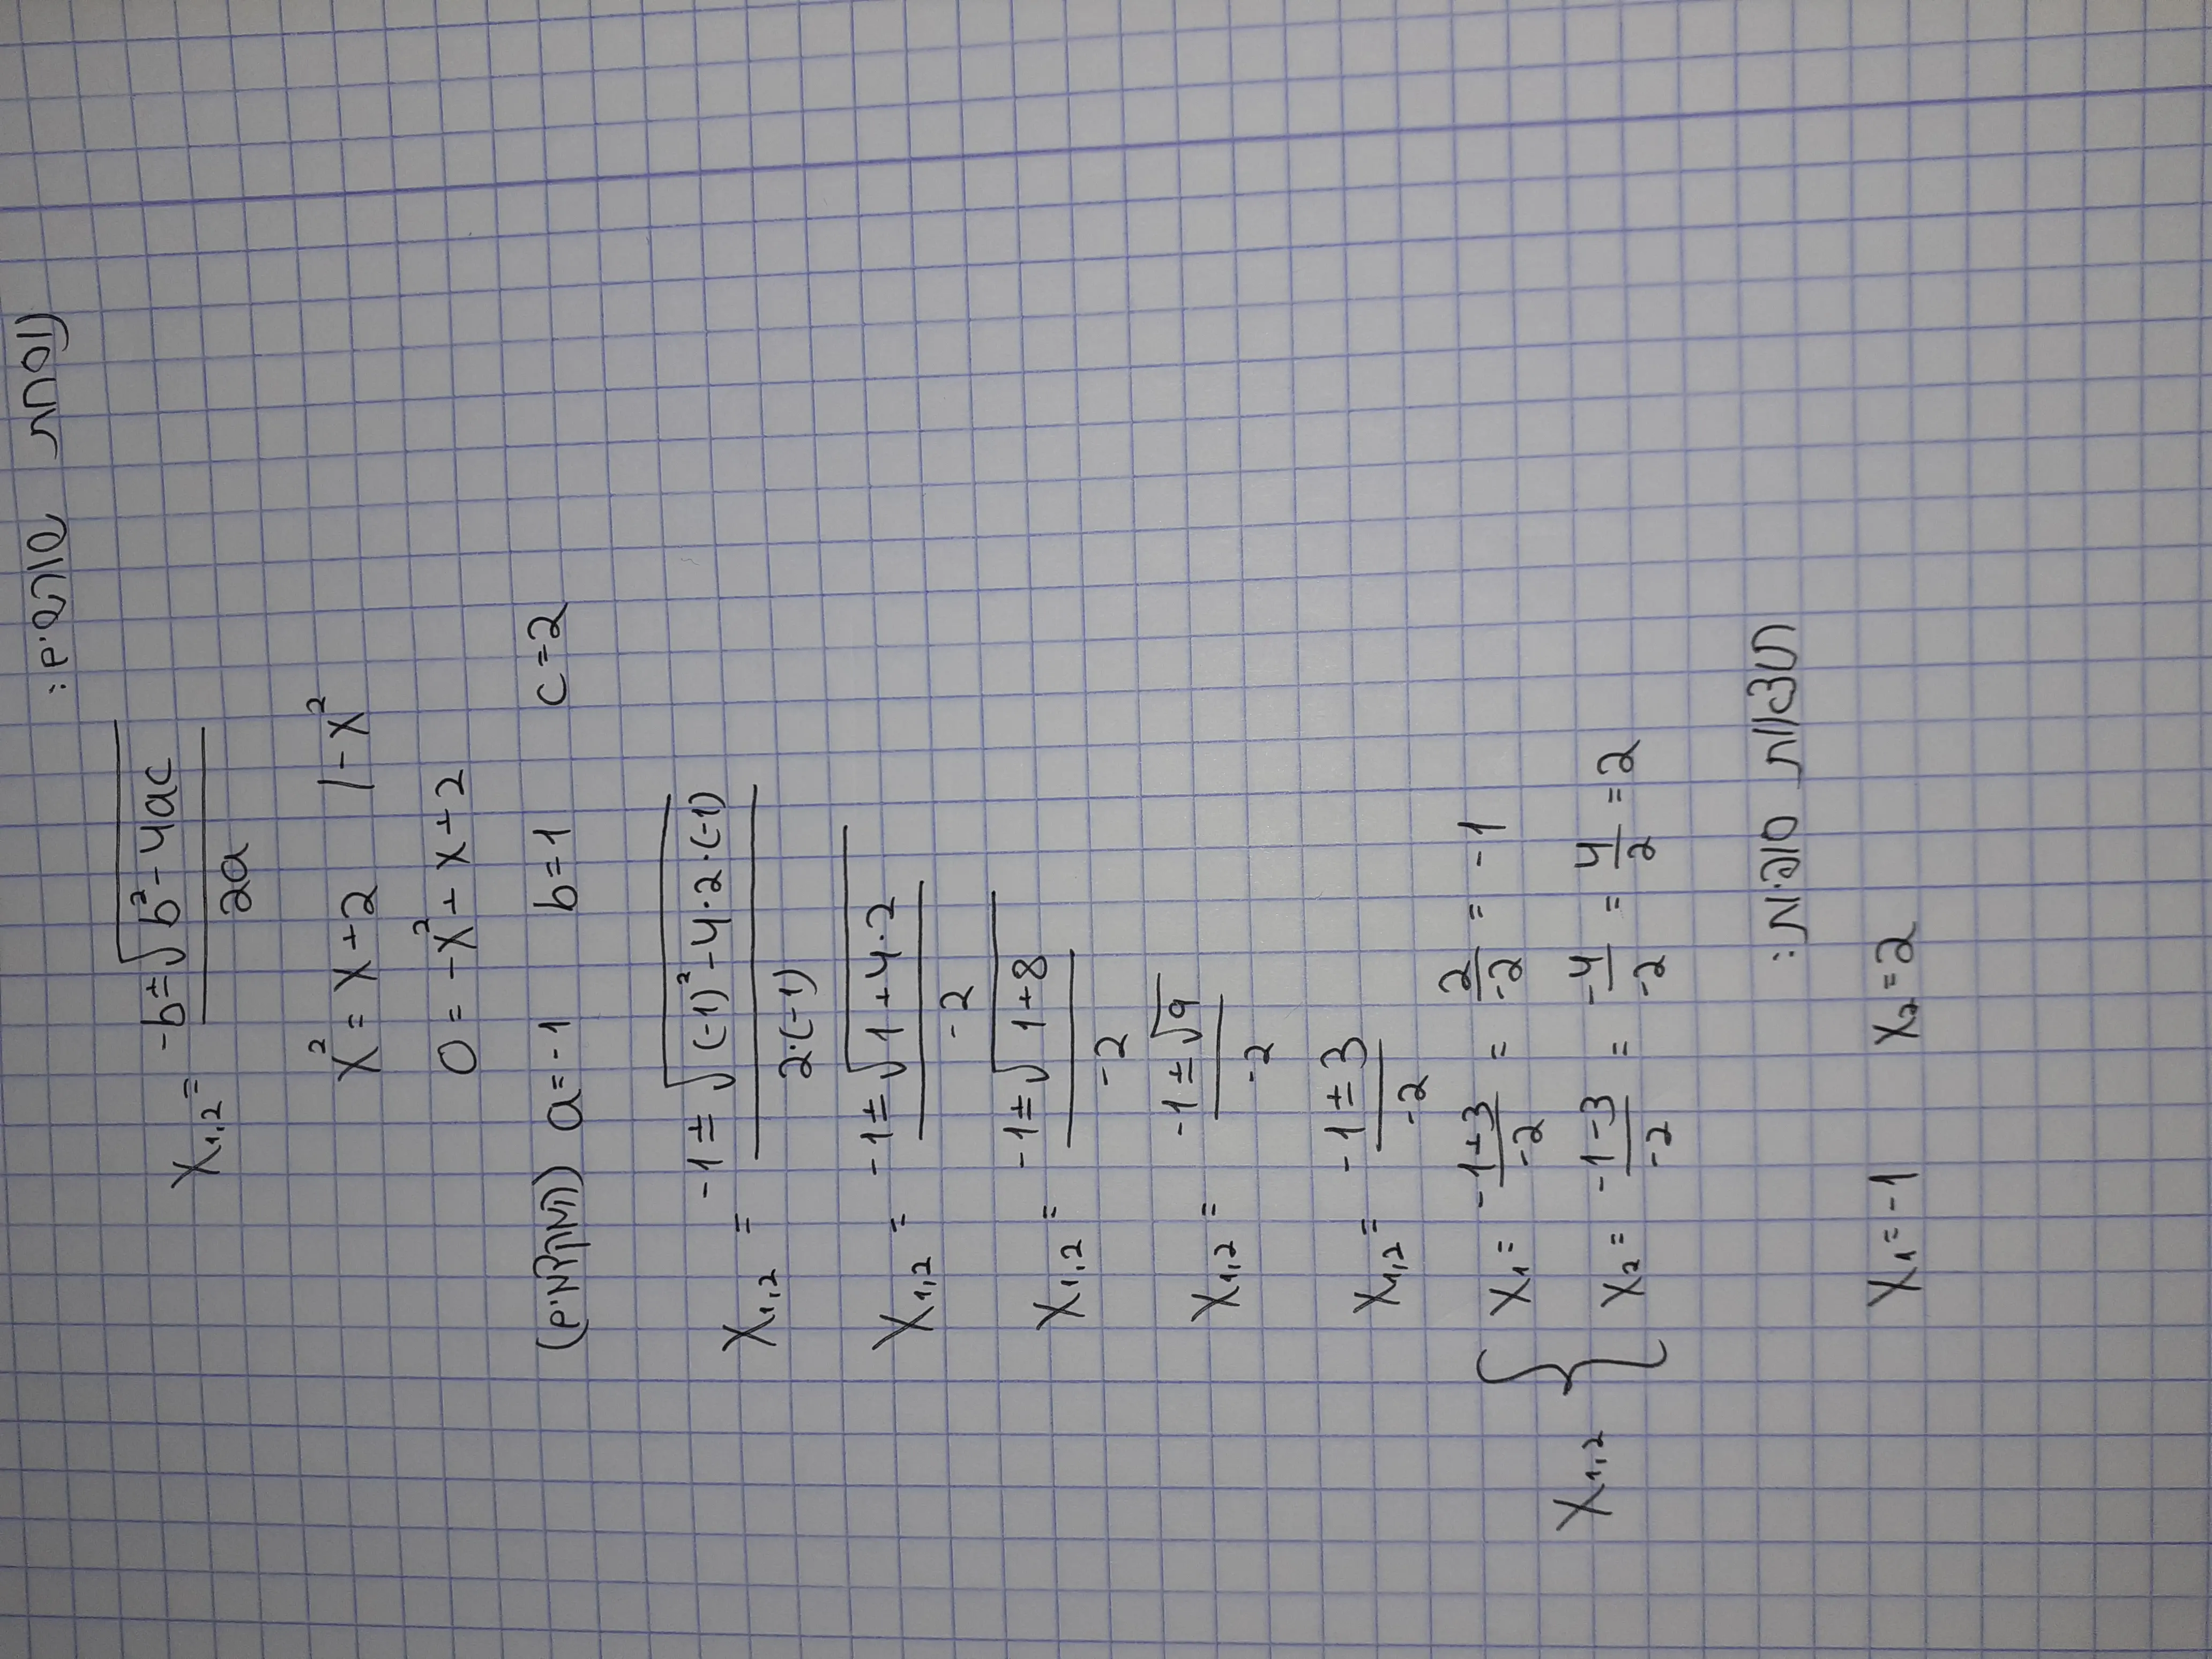 נוסחת השורשים:
X₁,₂ = (-b±√(b²-4ac))/(2a)
X² = X+2 /-X²
0 = -X²+X+2
(מקדמים) a=-1 b=1 c=2
X₁,₂ = (-1±√((-1)²-4·2·(-1)))/(2·(-1))
X₁,₂ = (-1±√(1+4·2))/(-2)
X₁,₂ = (-1±√(1+8))/(-2)
X₁,₂ = (-1±√9)/(-2)
X₁,₂ = (-1±3)/(-2)
X₁,₂ { X₁ = (-1+3)/(-2) = 2/(-2) = -1
X₂ = (-1-3)/(-2) = (-4)/(-2) = 4/2 = 2
תוצאות סופיות:
X₁=-1 X₂=2